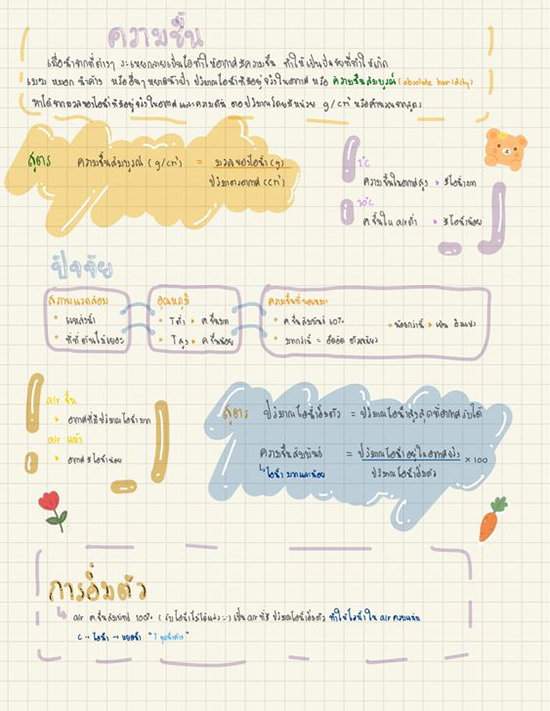 ความชื้น
เมื่อน้ำจากที่ต่างๆ ระเหยกลายเป็นไอทำให้อากาศมีความชื้น ทำให้เป็นปัจจัยที่ทำให้เกิด
เมฆ หมอก น้ำค้าง หรืออื่นๆ หยาดน้ำฟ้า ปริมาณไอน้ำที่มีอยู่จริงในอากาศ หรือ ความชื้นสัมบูรณ์ (absolute humidity)
หาได้จากมวลของไอน้ำที่มีอยู่จริงในอากาศ และความดัน ต่อปริมาตรโดยมีหน่วย g/cm³ หรือคำนวณจากสูตร
สูตร ความชื้นสัมบูรณ์ (g/cm³) = มวลของไอน้ำ (g)
ปริมาตรอากาศ (cm³)
ความชื้นในอากาศสูง มีไอน้ำมาก
ค.ชื้นใน airต่ำ มีไอน้ำน้อย
ปัจจัย
สภาพแวดล้อม
แหล่งน้ำ
อุณหภูมิ
Tต่ำ ค.ชื้นมาก
Tสูง ค.ชื้นน้อย
ค.ชื้นสัมพัทธ์ 60%
มากกว่านี้ = อึดอัด ตัวเหนียว
น้อยกว่านี้
air ชื้น
อากาศที่มีปริมาณไอน้ำมาก
air แห้ง
อากาศมีไอน้ำน้อย
สูตร ปริมาณไอน้ำอิ่มตัว = ปริมาณไอน้ำสูงสุดที่อากาศรับได้
ความชื้นสัมพัทธ์ = ปริมาณไอน้ำอยู่ในอากาศจริง × 100
ปริมาณไอน้ำอิ่มตัว
ไอน้ำ มากและน้อย
การอิ่มตัว
air ค.ชื้นสัมพัทธ์ 100% (รับไอน้ำไม่ได้แล้ว) เป็น air ที่มี ปริมาณไอน้ำอิ่มตัว ทำให้ไอน้ำใน air ควบแน่น
ไอน้ำ → หยดน้ำ "จุดน้ำค้าง"